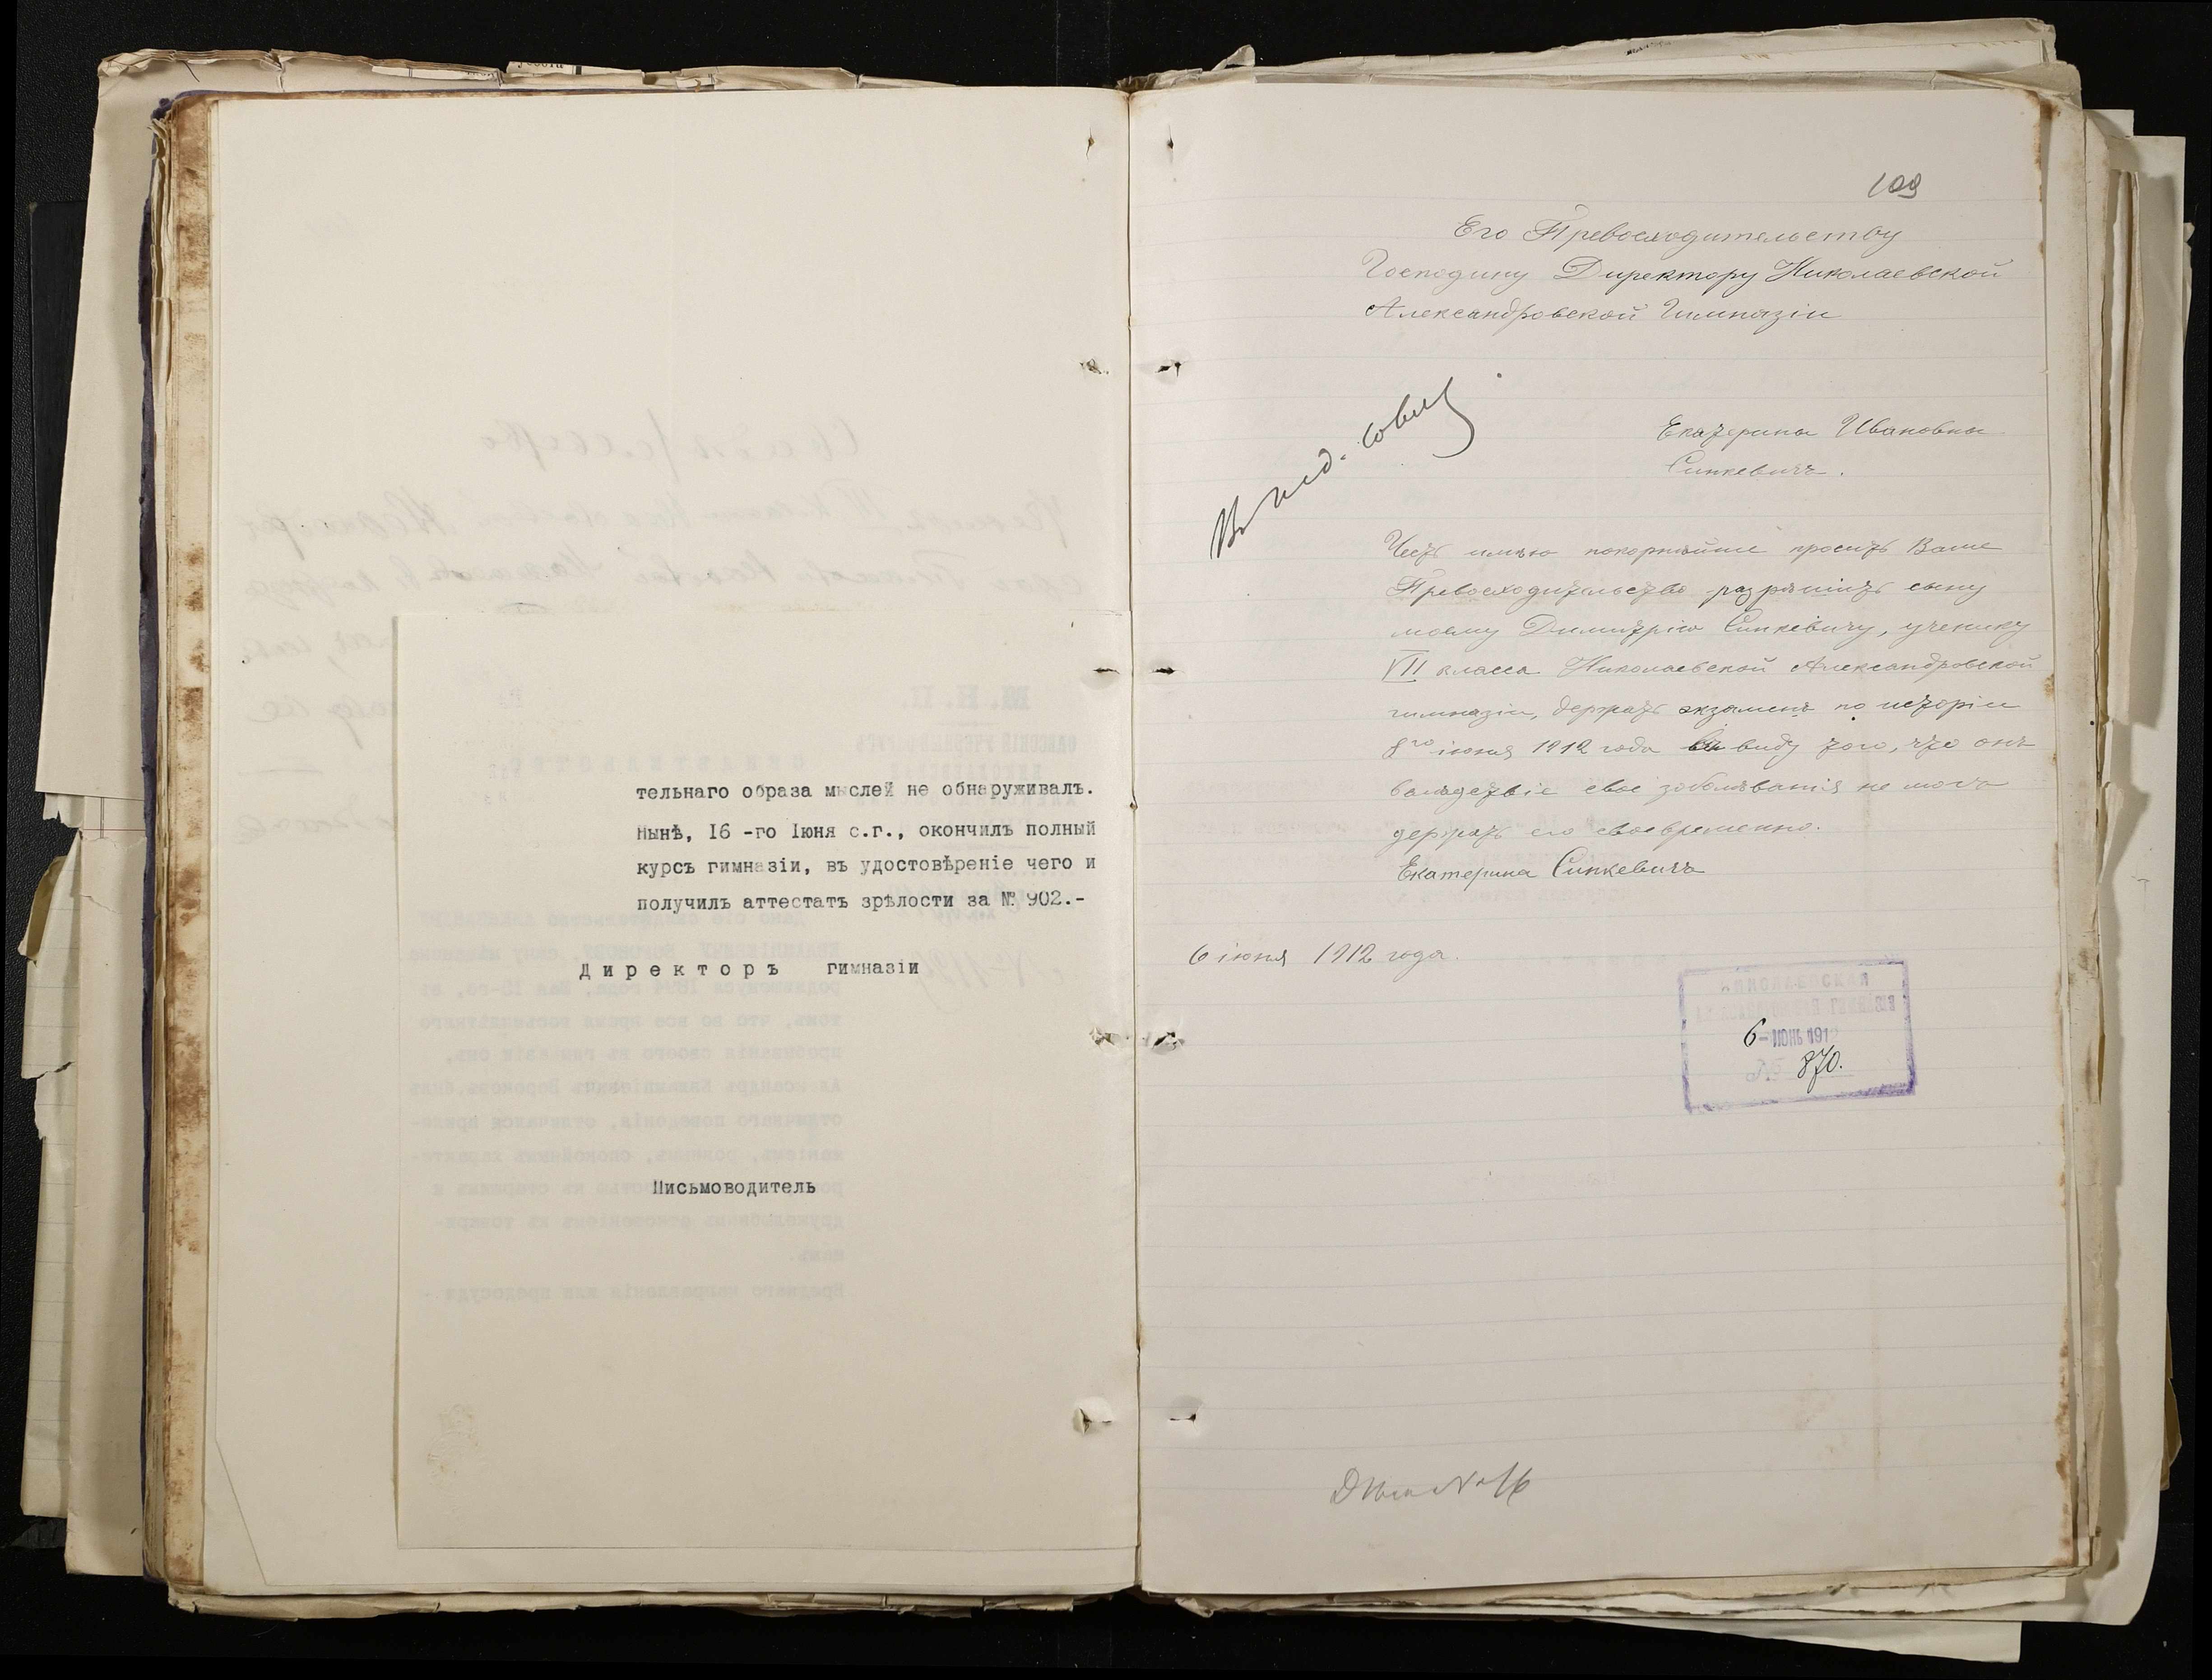 тельнаго образа мыслей не обнаруживалъ.
Нынѣ, 16 -го Іюня с.г., окончилъ полный
курсъ гимназіи, въ удостовѣреніе чего и
получилъ аттестатъ зрѣлости за № 902.-
Директоръ гимназіи
Письмоводитель
109
Его Превосходительству
Господину Директору Николаевской
Александровской Гимназіи
Въ пед. совѣт
Екатерины Ивановны
Синкевичъ.
Честь имѣю покорнѣйше просить Ваше
Превосходительство разрѣшить сыну
моему Димитрію Синкевичу, ученику
VII класса Николаевской Александровской
гимназіи, держать экзаменъ по исторіи
8го іюня 1912 года въ виду того, что онъ
вслѣдствіе свое заболѣванія не могъ
держать его своевременно.
Екатерина Синкевичъ
6 іюня 1912 года.
НИКОЛАЕВСКАЯ
АЛЕКСАНДРОВСКАЯ ГИМНАЗІЯ
6 - ИЮНЬ 191
№ 870.